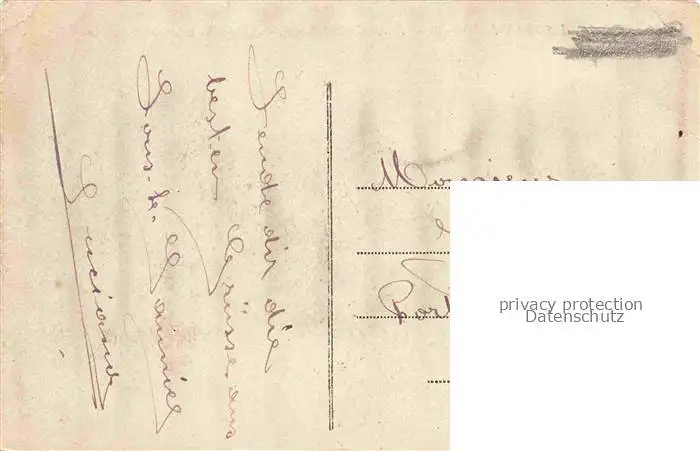 Sende dir die
besten Grüsse aus
Lons-le-Saunier
Luciana
Monsieur
privacy protection
Datenschutz